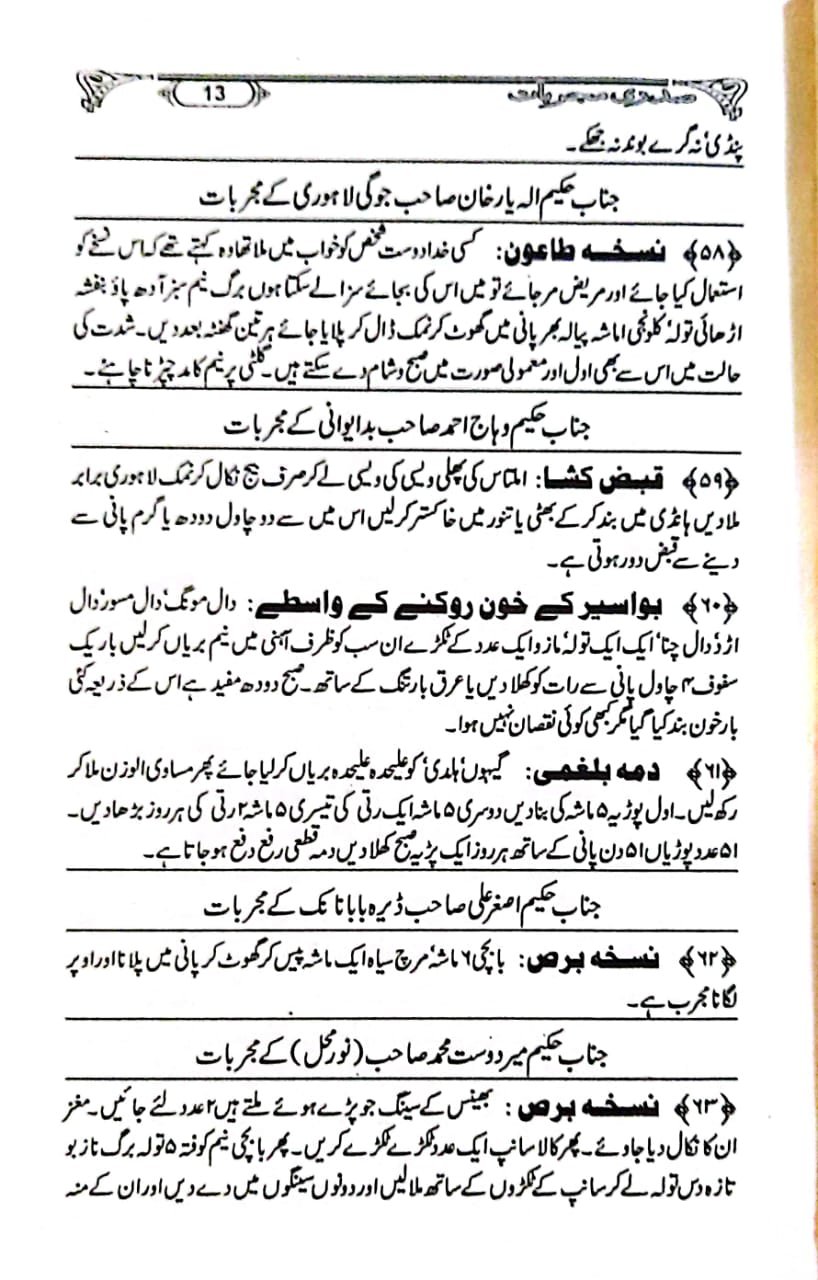 صدری مجربات
13
پنڈی نہ گرے بوند نہ جھکے۔
جناب حکیم الہ یار خان صاحب جوگی لاہوری کے مجربات
﴿۵۸﴾ نسخہ طاعون: کسی خدا دوست شخص کو خواب میں ملا تھا وہ کہتے تھے کہ اس نسخے کو
استعمال کیا جائے اور مریض مر جائے تو میں اس کی بجائے سزا لے سکتا ہوں برگ نیم سبز آدھ پاؤ بنفشہ
اڑھائی تولہ' کلونجی ا ماشہ پیالہ بھر پانی میں گھوٹ کر نمک ڈال کر پلایا جائے ہر تین گھنٹہ بعد دیں۔ شدت کی
حالت میں اس سے بھی اول اور معمولی صورت میں صبح و شام دے سکتے ہیں۔ گلٹی پر نیم کا مد چپڑنا چاہئے۔
جناب حکیم وہاج احمد صاحب بدایوانی کے مجربات
﴿۵۹﴾ قبض کشا: املتاس کی پھلی ویسی کی ویسی لے کر صرف بیج نکال کر نمک لاہوری برابر
ملا دیں ہانڈی میں بند کر کے بھٹی یا تنور میں خاکستر کر لیں اس میں سے دو چاول دودھ یا گرم پانی سے
دینے سے قبض دور ہوتی ہے۔
﴿۶۰﴾ بواسیر کے خون روکنے کے واسطے: دال مونگ' دال مسور' دال
اڑد' دال چنا' ایک ایک تولہ' مازو ایک عدد کے ٹکڑے ان سب کو ظرف آہنی میں نیم بریاں کر لیں باریک
سفوف ۴ چاول پانی سے رات کو کھلا دیں یا عرق بارتنگ کے ساتھ۔ صبح دودھ مفید ہے اس کے ذریعہ کئی
بار خون بند کیا گیا مگر کبھی کوئی نقصان نہیں ہوا۔
﴿۶۱﴾ دمہ بلغمی: گیہوں' ہلدی' کو علیحدہ علیحدہ بریاں کر لیا جائے پھر مساوی الوزن ملا کر
رکھ لیں۔ اول پوڑیہ ۵ ماشہ کی بنا دیں دوسری ۵ ماشہ ایک رتی کی تیسری ۵ ماشہ ۲ رتی کی ہر روز بڑھا دیں۔
۵۱ عدد پوڑیاں ۵۱ دن پانی کے ساتھ ہر روز ایک پڑیہ صبح کھلا دیں دمہ قطعی رفع دفع ہو جاتا ہے۔
جناب حکیم اصغر علی صاحب ڈیرہ بابا نانک کے مجربات
﴿۶۲﴾ نسخہ برص: بابچی ۶ ماشہ' مرچ سیاہ ایک ماشہ پیس کر گھوٹ کر پانی میں پلانا اور اوپر
لگانا مجرب ہے۔
جناب حکیم میر دوست محمد صاحب (نور محل) کے مجربات
﴿۶۳﴾ نسخہ برص: بھینس کے سینگ جو پڑے ہوئے ملتے ہیں ۲ عدد لئے جائیں۔ مغز
ان کا نکال دیا جاوئے۔ پھر کالا سانپ ایک عدد ٹکڑے ٹکڑے کریں۔ پھر بابچی نیم کوفتہ ۵ تولہ برگ نازبو
تازہ دس تولہ لے کر سانپ کے ٹکڑوں کے ساتھ ملا لیں اور دونوں سینگوں میں دے دیں اور ان کے منہ